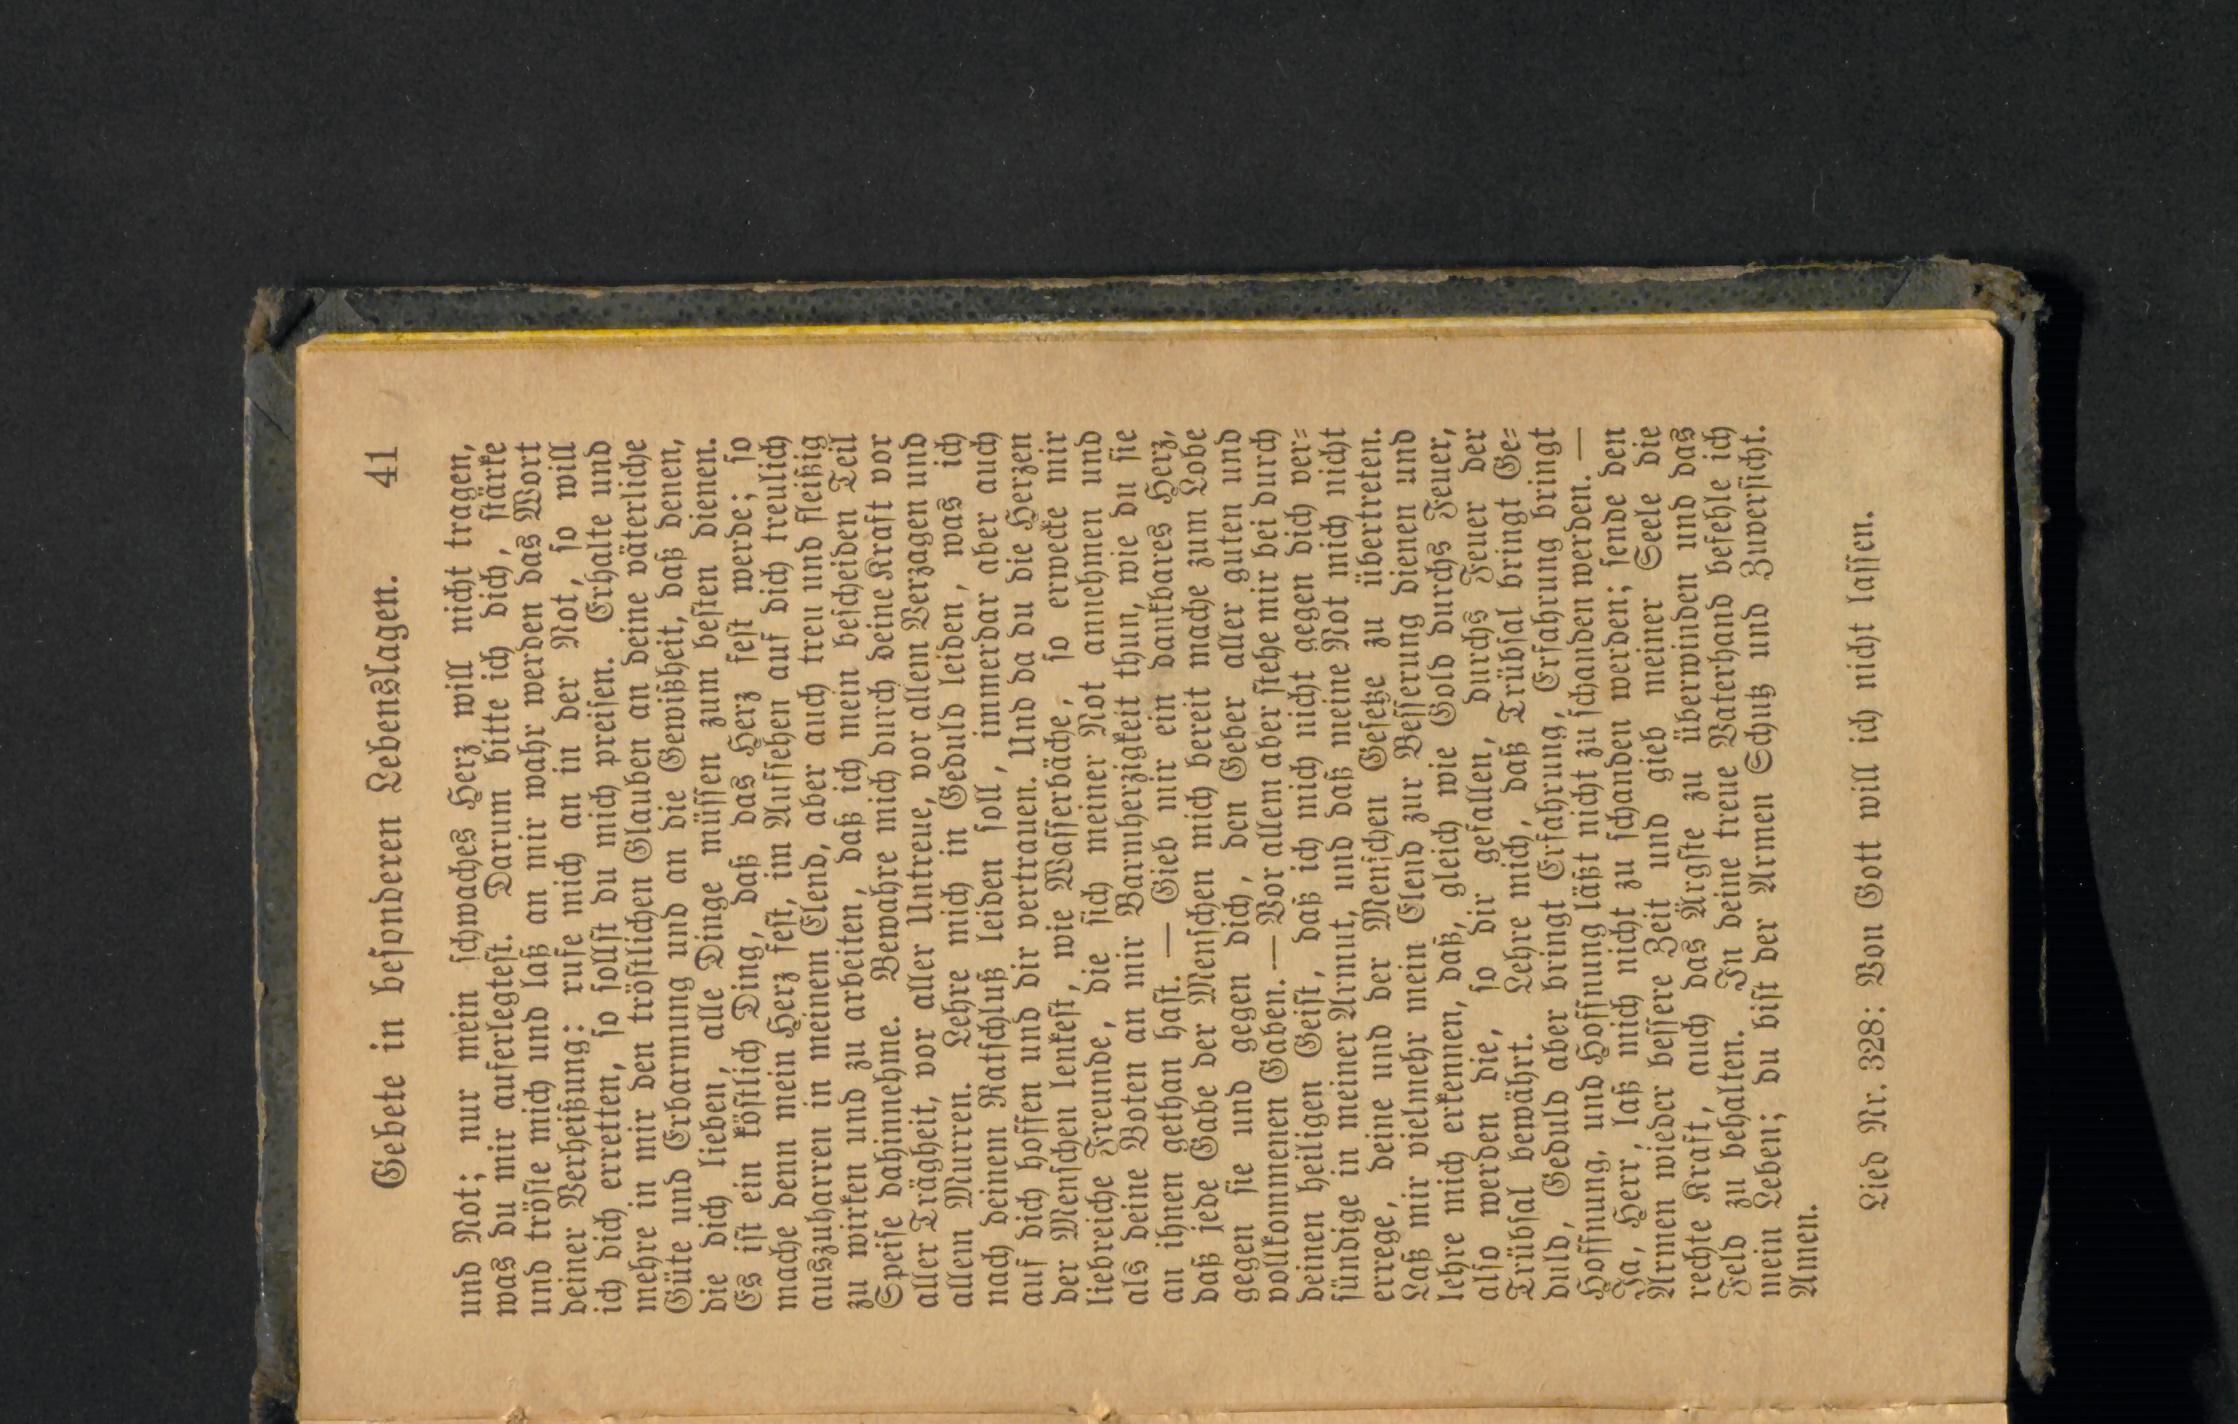 Gebete in besonderen Lebenslagen. 41
und Not; nur mein schwaches Herz will nicht tragen,
was du mir auferlegtest. Darum bitte ich dich, stärke
und tröste mich und laß an mir wahr werden das Wort
deiner Verheißung: rufe mich an in der Not, so will
ich dich erretten, so sollst du mich preisen. Erhalte und
mehre in mir den tröstlichen Glauben an deine väterliche
Güte und Erbarmung und an die Gewißheit, daß denen,
die dich lieben, alle Dinge müssen zum besten dienen.
Es ist ein köstlich Ding, daß das Herz fest werde; so
mache denn mein Herz fest, im Aufsehen auf dich treulich
auszuharren in meinem Elend, aber auch treu und fleißig
zu wirken und zu arbeiten, daß ich mein bescheiden Teil
Speise dahinnehme. Bewahre mich durch deine Kraft vor
aller Trägheit, vor aller Untreue, vor allem Verzagen und
allem Murren. Lehre mich in Geduld leiden, was ich
nach deinem Ratschluß leiden soll, immerdar aber auch
auf dich hoffen und dir vertrauen. Und da du die Herzen
der Menschen lenkest, wie Wasserbäche, so erwecke mir
liebreiche Freunde, die sich meiner Not annehmen und
als deine Boten an mir Barmherzigkeit thun, wie du sie
an ihnen gethan hast. — Gieb mir ein dankbares Herz,
daß jede Gabe der Menschen mich bereit mache zum Lobe
gegen sie und gegen dich, den Geber aller guten und
vollkommenen Gaben. — Vor allem aber stehe mir bei durch
deinen heiligen Geist, daß ich mich nicht gegen dich ver-
sündige in meiner Armut, und daß meine Not mich nicht
errege, deine und der Menschen Gesetze zu übertreten.
Laß mir vielmehr mein Elend zur Besserung dienen und
lehre mich erkennen, daß, gleich wie Gold durchs Feuer,
also werden die, so dir gefallen, durchs Feuer der
Trübsal bewährt. Lehre mich, daß Trübsal bringt Ge-
duld, Geduld aber bringt Erfahrung, Erfahrung bringt
Hoffnung, und Hoffnung läßt nicht zu schanden werden. —
Ja, Herr, laß mich nicht zu schanden werden; sende den
Armen wieder bessere Zeit und gieb meiner Seele die
rechte Kraft, auch das Ärgste zu überwinden und das
Feld zu behalten. In deine treue Vaterhand befehle ich
mein Leben; du bist der Armen Schutz und Zuversicht.
Amen.
Lied Nr. 328: Von Gott will ich nicht lassen.